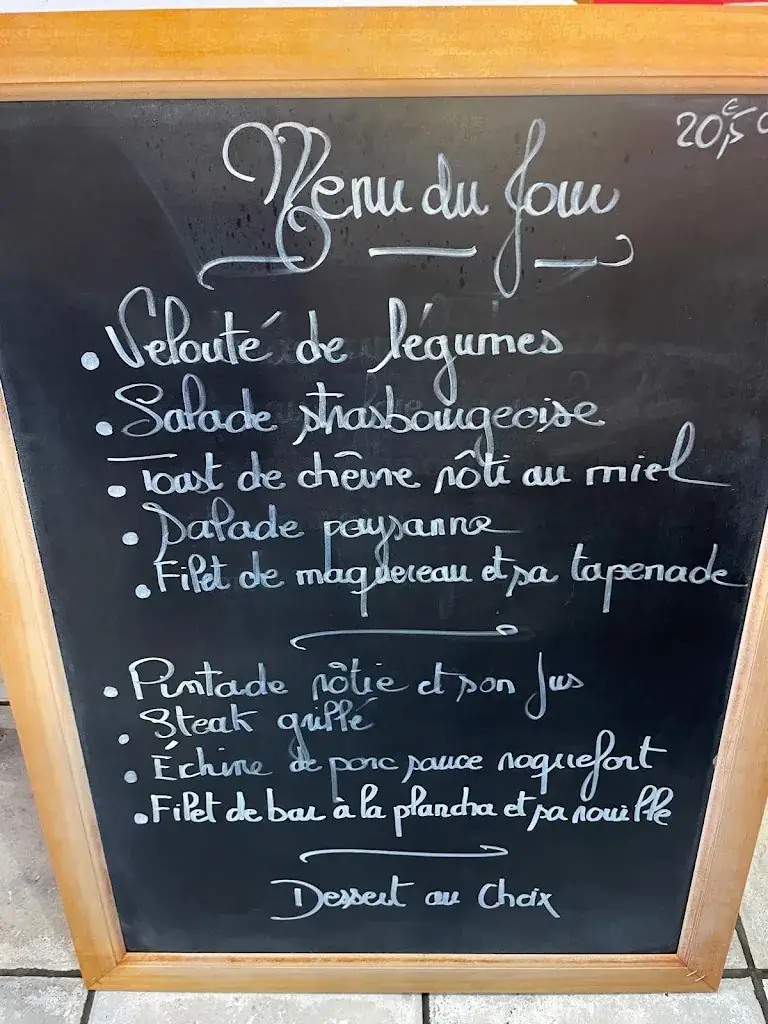 20,50€
Menu du Jour
• Velouté de légumes
• Salade strasbourgeoise
• Toast de chèvre rôti au miel
• Salade paysanne
• Filet de maquereau et sa tapenade
• Pintade rôtie et son jus
• Steak grillé
• Échine de porc sauce roquefort
• Filet de bar à la plancha et sa rouille
Dessert au Choix